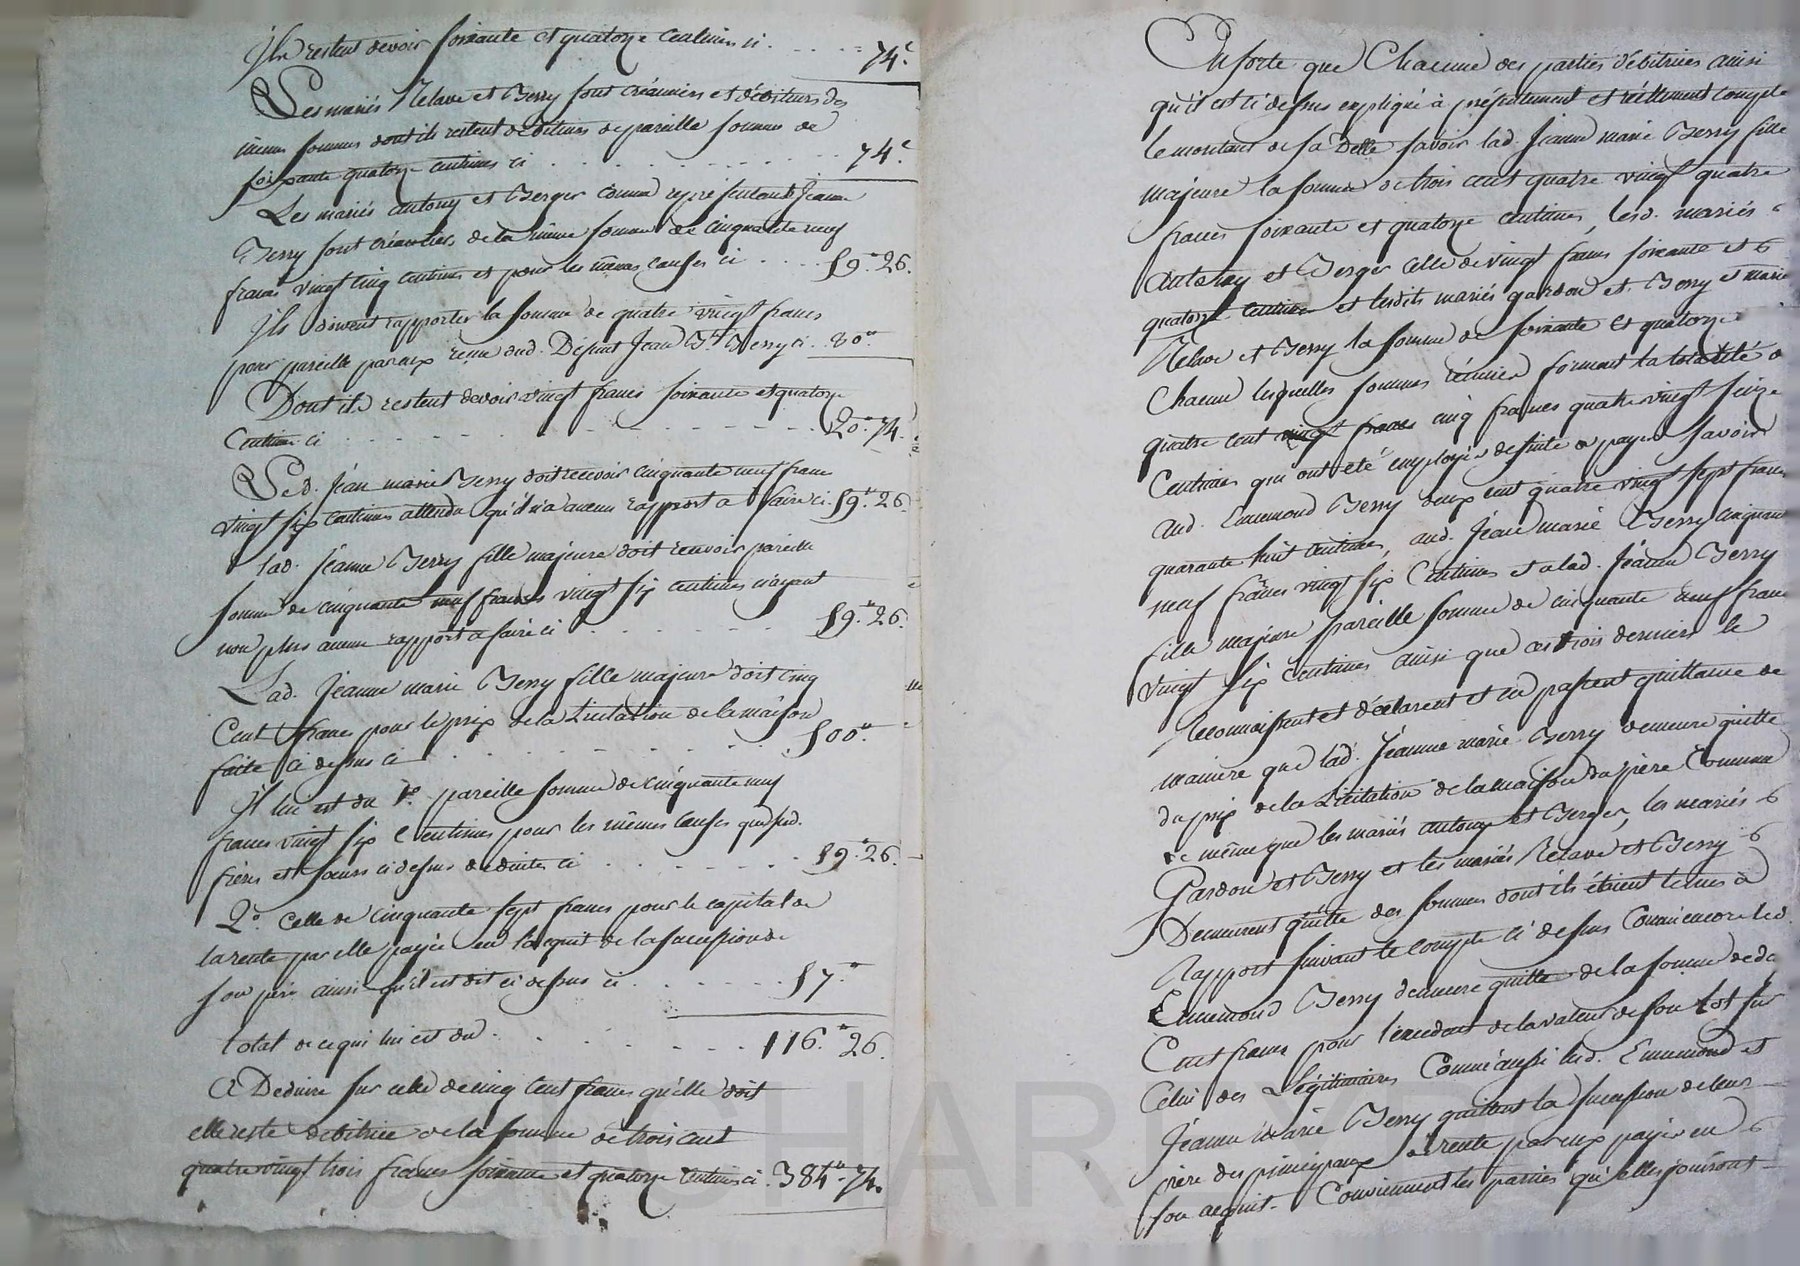 Ils restent devoir soixante et quatorze centimes ci . . . . 74.c
Les mariés Relave et Berry sont créanciers et débiteurs des
mêmes sommes dont ils restent débiteurs de pareille somme de
soixante quatorze centimes ci . . . . . . . . . . 74.c
Les mariés antony et Berger comme représentants Jeanne
Berry sont créanciers de la même somme de cinquante neuf
francs vingt cinq centimes et pour les mêmes causes ci . . . . 59." 26.
Ils doivent rapporter la somme de quatre vingt francs
pour pareille par eux reçue dud. Defunt Jean Bte Berry ci . 80."
Dont ils restent devoir vingt francs soixante et quatorze
Centimes ci . . . . . . . . . . . . . . 20." 74.
Led. Jean marie Berry doit recevoir cinquante neuf francs
vingt six centimes attendu qu'il n'a aucun rapport a faire ci 59." 26.
Lad. Jeanne Berry fille majeure doit recevoir pareille
somme de cinquante neuf francs vingt six centimes n'ayant
non plus aucun rapport a faire ci . . . . . . . 59." 26.
Lad. Jeanne marie Berry fille majeure doit cinq
Cent francs pour le prix de la Licitation de la maison
faite ci dessus ci . . . . . . . . . . 500."
Il lui est du 1° pareille somme de cinquante neuf
francs vingt six Centimes pour les mêmes causes que sesd.
frères et sœurs ci dessus déduites ci . . . . . . . 59." 26.
2.° Celle de cinquante sept francs pour le capital de
la rente par elle payée en l'acquit de la succession de
son père ainsi qu'il est dit ci dessus ci . . . . . . 57."
total de ce qui lui est du . . . . . . . 116." 26.
A Deduire sur celle de cinq cent francs qu'elle doit
elle reste débitrice de la somme de trois cent
quatre vingt trois francs soixante et quatorze centimes ci . 384." 74.
En sorte que Chacune des parties débitrices ainsi
qu'il est ci dessus expliqué a présentement et réellement compté
le montant de sa Dette savoir lad. Jeanne marie Berry fille
majeure la somme de trois cent quatre vingt quatre
francs soixante et quatorze centimes, lesd. mariés
Antony et Berger celle de vingt francs soixante et
quatorze centimes et lesdits mariés gardon et Berry et mariés
Relave et Berry la somme de soixante et quatorze
Chacun lesquelles sommes réunies forment la totalité de
quatre cent vingt francs cinq francs quatre vingt seize
Centimes qui ont été employées de suite a payer savoir
aud. Ennemond Berry deux cent quatre vingt sept francs
quarante huit centimes, aud. Jean marie Berry cinquante
neuf francs vingt six Centimes et a lad. Jeanne Berry
fille majeure pareille somme de cinquante neuf francs
vingt six centimes ainsi que ces trois derniers le
reconnaissent et déclarent et en passent quittance de
manière que lad. Jeanne marie Berry demeure quitte
du prix de la Licitation de la maison du père Commun
de même que les mariés antony et Berger, les mariés
Gardon et Berry et les mariés Relave et Berry
Demeurent quitte des sommes dont ils étaient tenus à
Rapport suivant le compte ci dessus Comme encore led.
Ennemond Berry demeure quitte de la somme de
Cent francs pour l'excedent de la valeur de son Lot sur
Celui des Légitimaires Comme aussi lesd. Ennemond et
Jeanne Marie Berry quittent la succession de leur
père des principaux de rente par eux payés en
son acquit. Conviennent les parties qu'elles jouiront